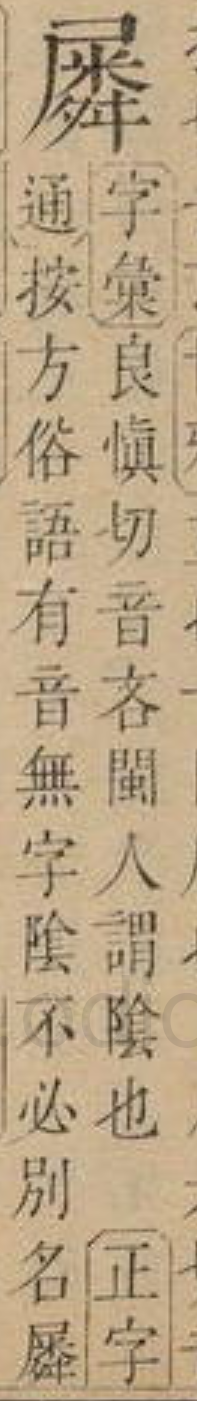 𡳞
字彙良愼切音吝閩人謂陰也 正字
通按方俗語有音無字陰不必別名𡳞